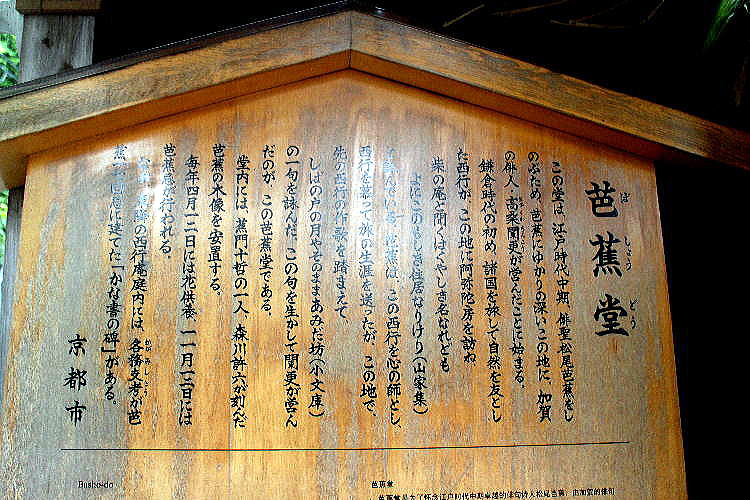 芭蕉堂
ばしょうどう
この堂は、江戸時代中期、俳聖松尾芭蕉をし
のぶため、芭蕉にゆかりの深いこの地に、加賀
の俳人・高桑闌更が営んだことに始まる。
鎌倉時代の初め、諸国を旅して自然を友とし
た西行が、この地に阿弥陀房を訪ね
柴の庵と聞くはくやしき名なれども
よにこのもしき住居なりけり(山家集)
この西行を心の師とし、
西行を慕って旅の生涯を送ったが、この地で、
先の西行の作歌を踏まえて、
しばの戸の月やそのままあみだ坊(小文庫)
の一句を詠んだ。この句を生かして闌更が営ん
だのが、この芭蕉堂である。
堂内には、蕉門十哲の一人・森川許六が刻んだ
芭蕉の木像を安置する。
毎年四月一二日には花供養、一一月一二日には
芭蕉忌が行われる。
西行庵庭内には、各務支考が芭
かがみしこう
に建てた「かな書の碑」がある。
京都市
Basho-do
芭蕉堂